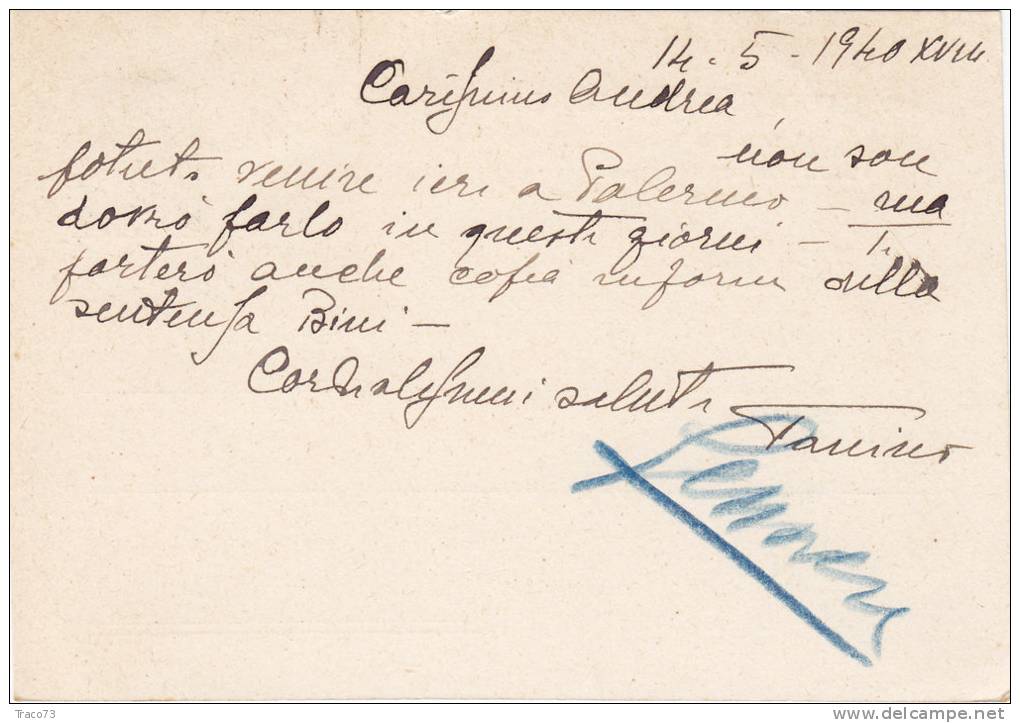 14 - 5 - 1940 XVIII
Carissimo Andrea,
non son
potuto venire ieri a Palermo — ma
dovrò farlo in questi giorni — Ti
porterò anche copia inform della
sentenza Bini —
Cordialissimi saluti
Tanino
Traco73
www.delcampe.net